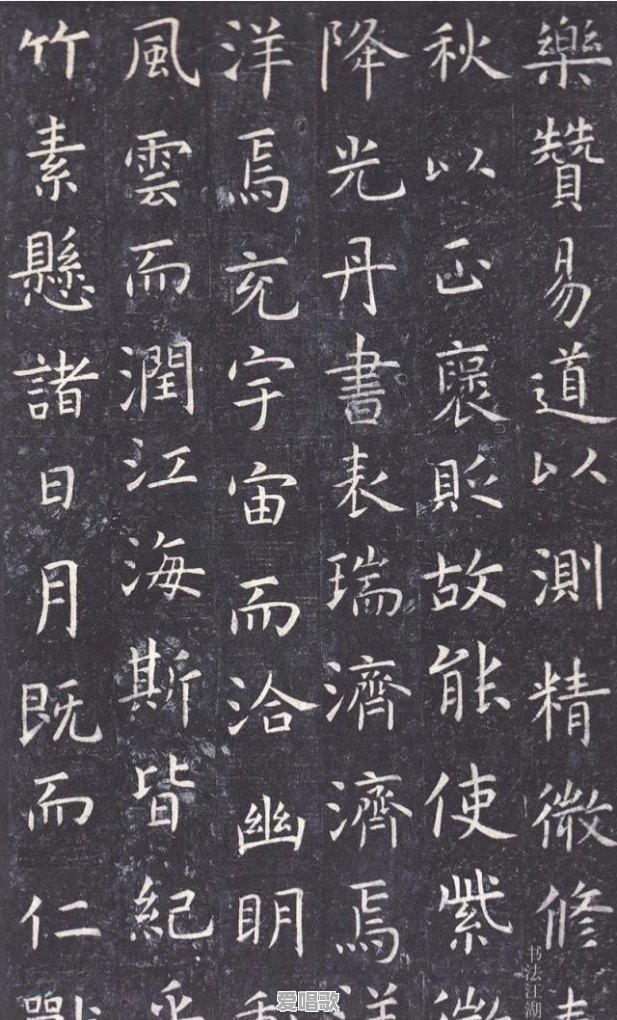 樂贊易道以測精微修
秋以正褒貶故能使紫微
降光丹書表瑞濟濟焉洋
洋焉充宇宙而洽幽明
風雲而潤江海斯皆紀乎
竹素懸諸日月既而仁
书法江湖
爱唱歌